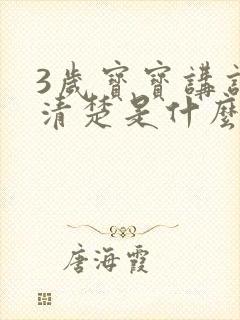 3歲寶寶講
清楚是什麼
唐海霞